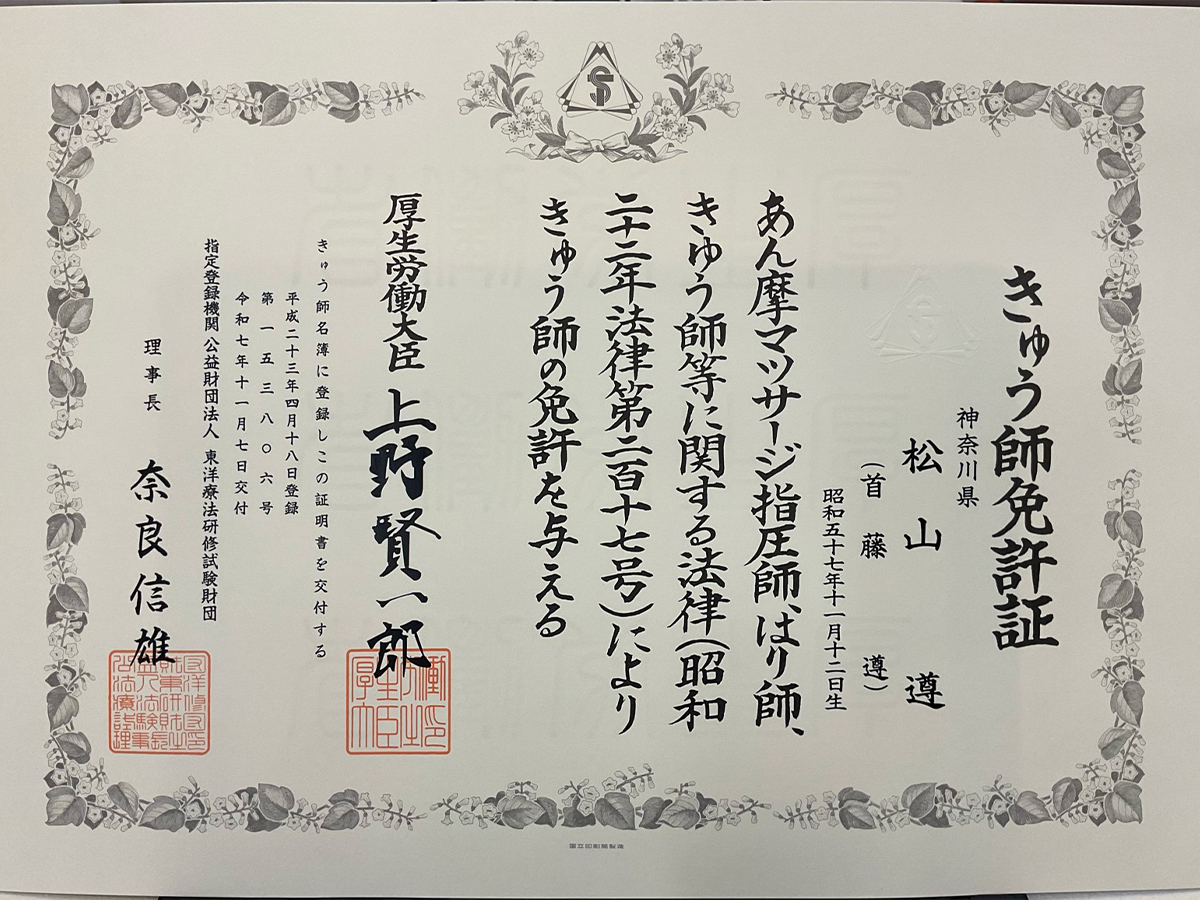 きゅう師免許証
神奈川県
松山 遵
(首藤 遵)
昭和五十七年十一月十二日生
あん摩マツサージ指圧師、はり師、
きゆう師等に関する法律(昭和
二十二年法律第二百十七号)により
きゅう師の免許を与える
厚生労働大臣 上野賢一郎
きゅう師名簿に登録しこの証明書を交付する
平成二十三年四月十八日登録
第一五三八〇六号
令和七年十一月七日交付
指定登録機関 公益財団法人 東洋療法研修試験財団
理事長 奈良信雄
国立印刷局製造